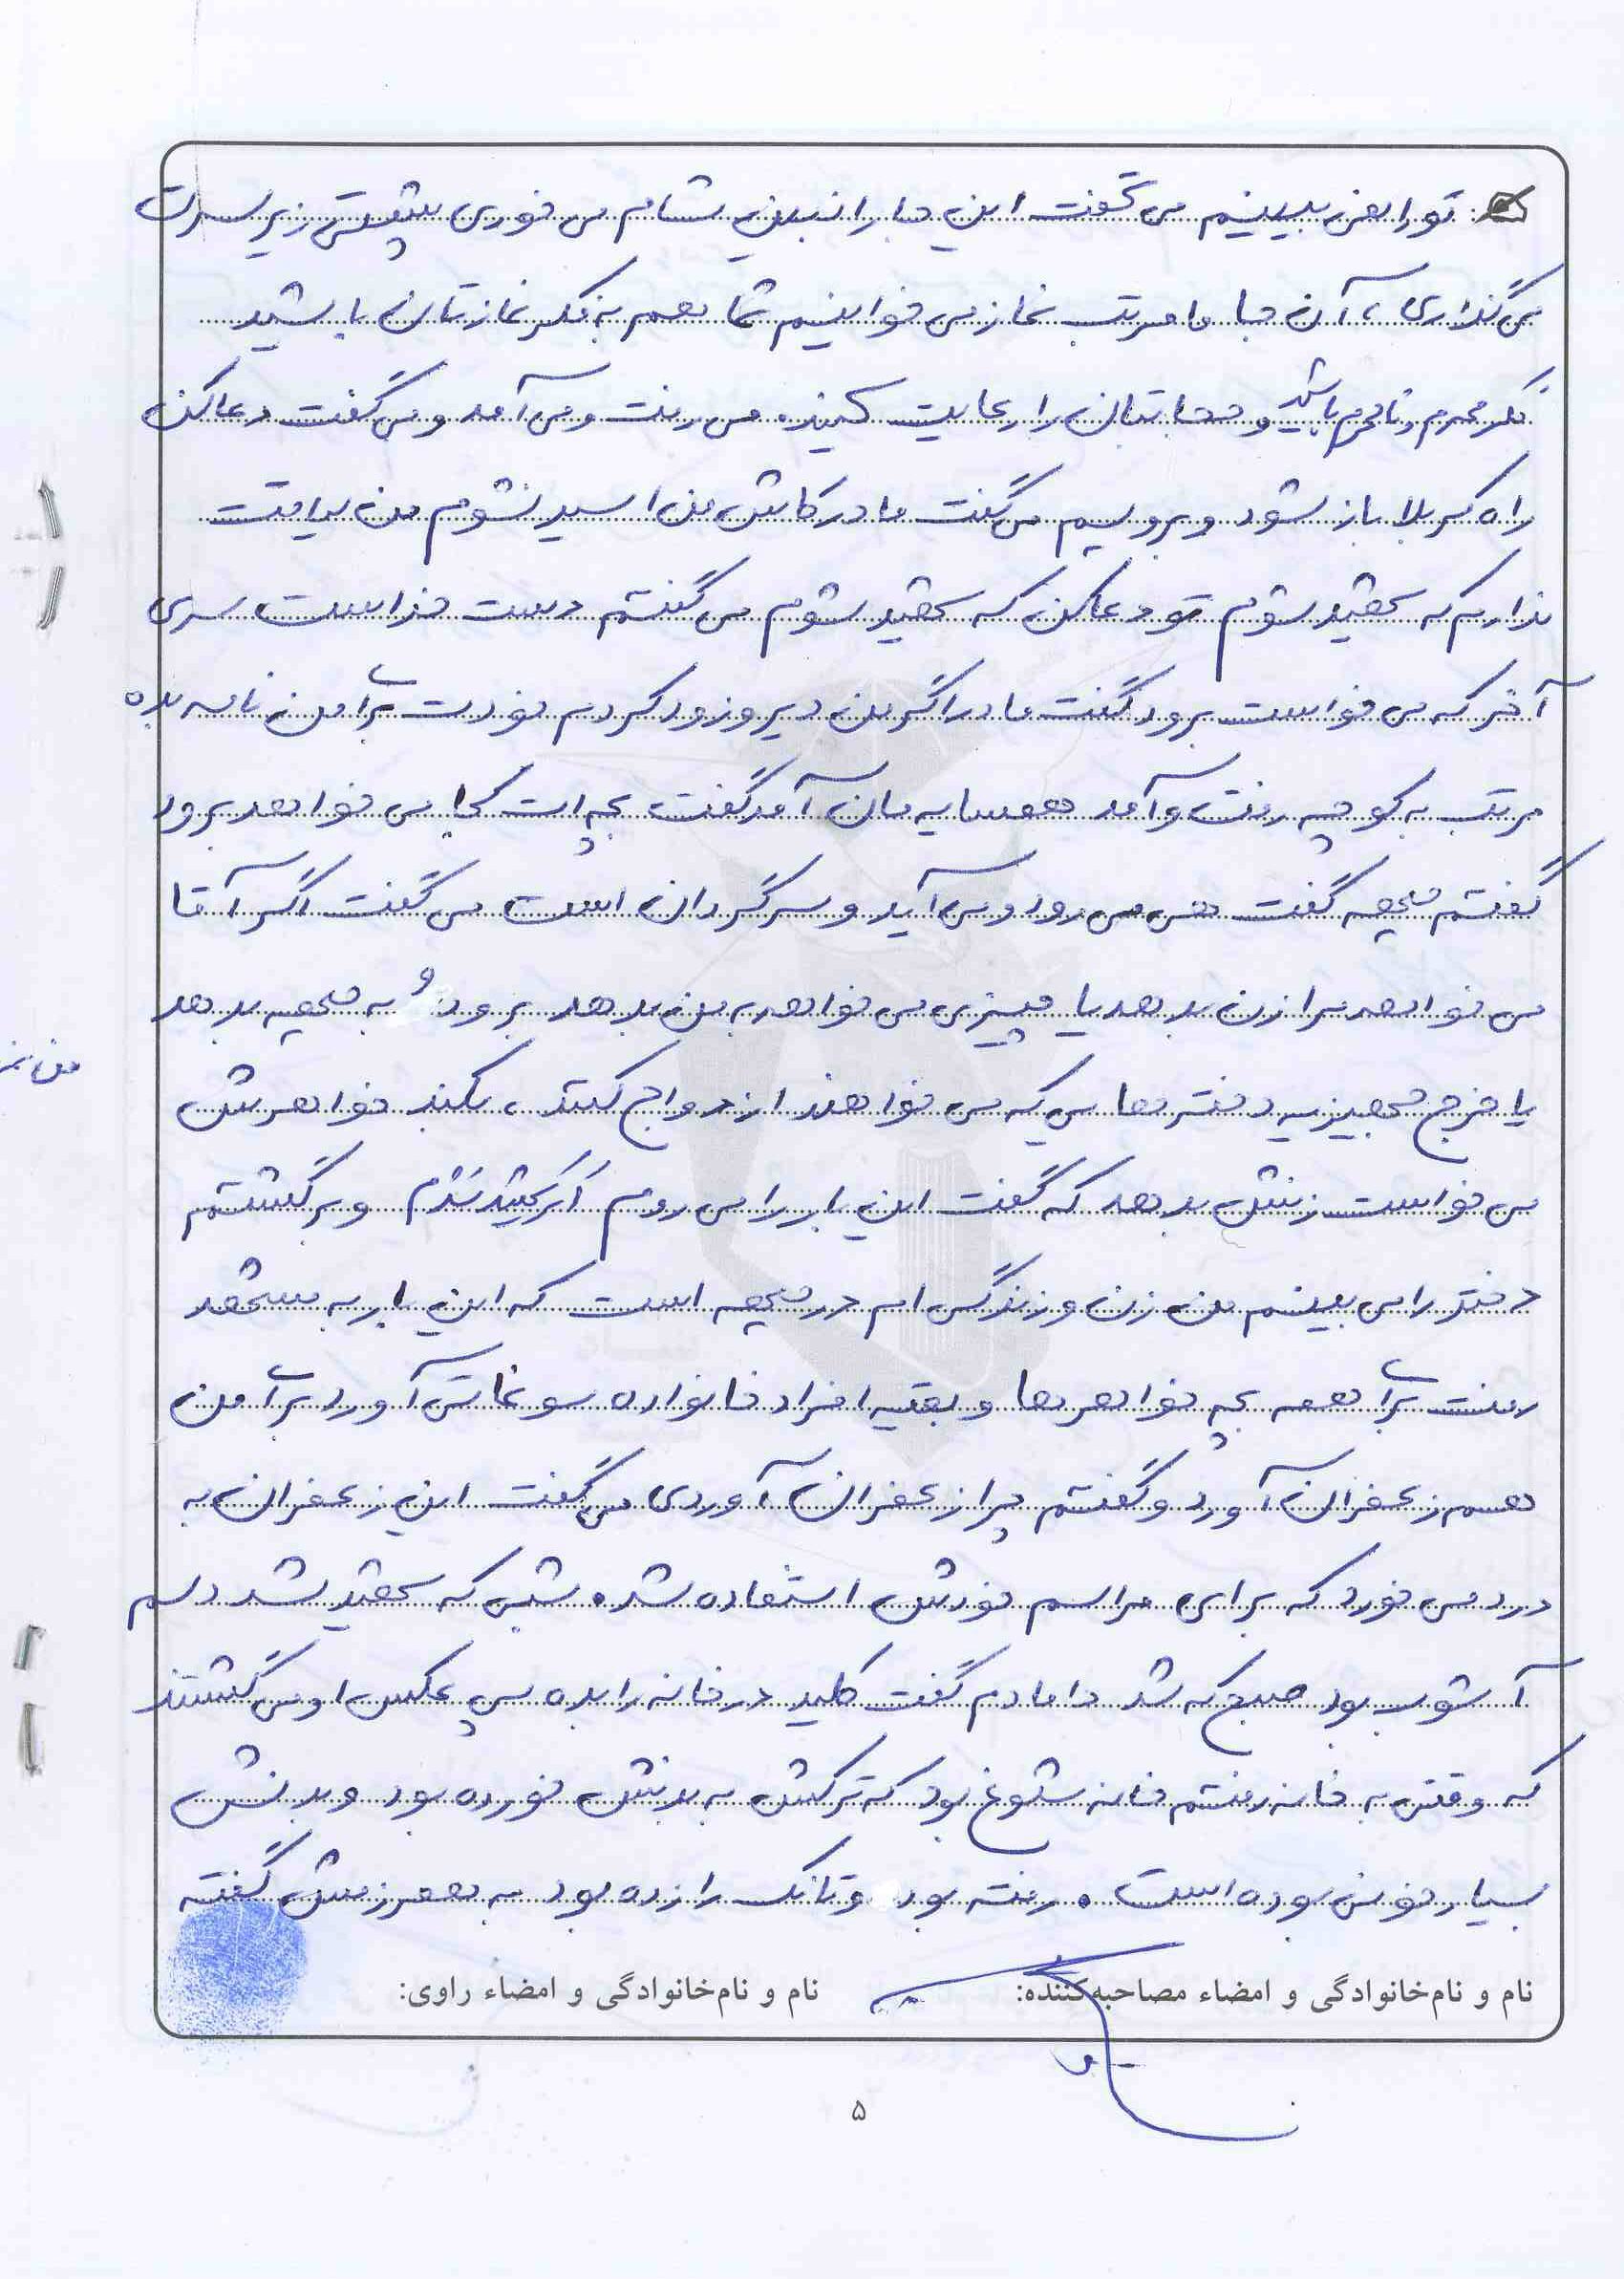 تو را نمی‌بینیم می‌گفت این جا را نبین شام می‌خوری پشتی زیر سرت
می‌گذاری، آن جا ما مرتب نماز می‌خوانیم شما هم به فکر نمازتان باشید
فکر محرم و نامحرم باشید و حجابتان را رعایت کنید. می‌رفت و می‌آمد و می‌گفت دعا کن
راه کربلا باز شود و برویم می‌گفت مادر کاش من اسیر نشوم من لیاقت
ندارم که شهید شوم تو دعا کن که شهید شوم می‌گفتم دست خداست سری
آخر که می‌خواست برود گفت مادر اگر من دیر و زود کردم خودت برای من نامه بده
مرتب به کوچه رفت و آمد همسایه مان آمد گفت بچه ات کجا می‌خواهد برود
گفتم جبهه گفت هی می‌رود و می‌آید و سرگردان است می‌گفت اگر آقا
می‌خواهد مرا زن بدهد یا چیزی می‌خواهد به من بدهد برود و به جبهه بدهد
یا خرج جهیزیه دخترهایی که می‌خواهند ازدواج کنند، بکند خواهرش
می‌خواست زنش بدهد که گفت این بار را می‌روم اگر شهید نشدم و برگشتم
دختر را می‌بینم من زن و زندگی ام در جبهه است که این بار به مشهد
رفت برای همه بچه خواهرها و بقیه افراد خانواده سوغاتی آورد برای من
هم زعفران آورد و گفتم چرا زعفران آوردی می‌گفت این زعفران به
درد می‌خورد که برای مراسم خودش استفاده شد. شبی که شهید شد دلم
آشوب بود صبح که شد دامادم گفت کلید در خانه را بده پی عکس او می‌گشتند
که وقتی به خانه رفتم خانه شلوغ بود که ترکش به بدنش خورده بود و بدنش
بسیار خونی بوده است. رفته بود و تانک را زده بود به همرزمش گفته
نام و نام‌خانوادگی و امضاء مصاحبه‌کننده:
نام و نام‌خانوادگی و امضاء راوی:
۵